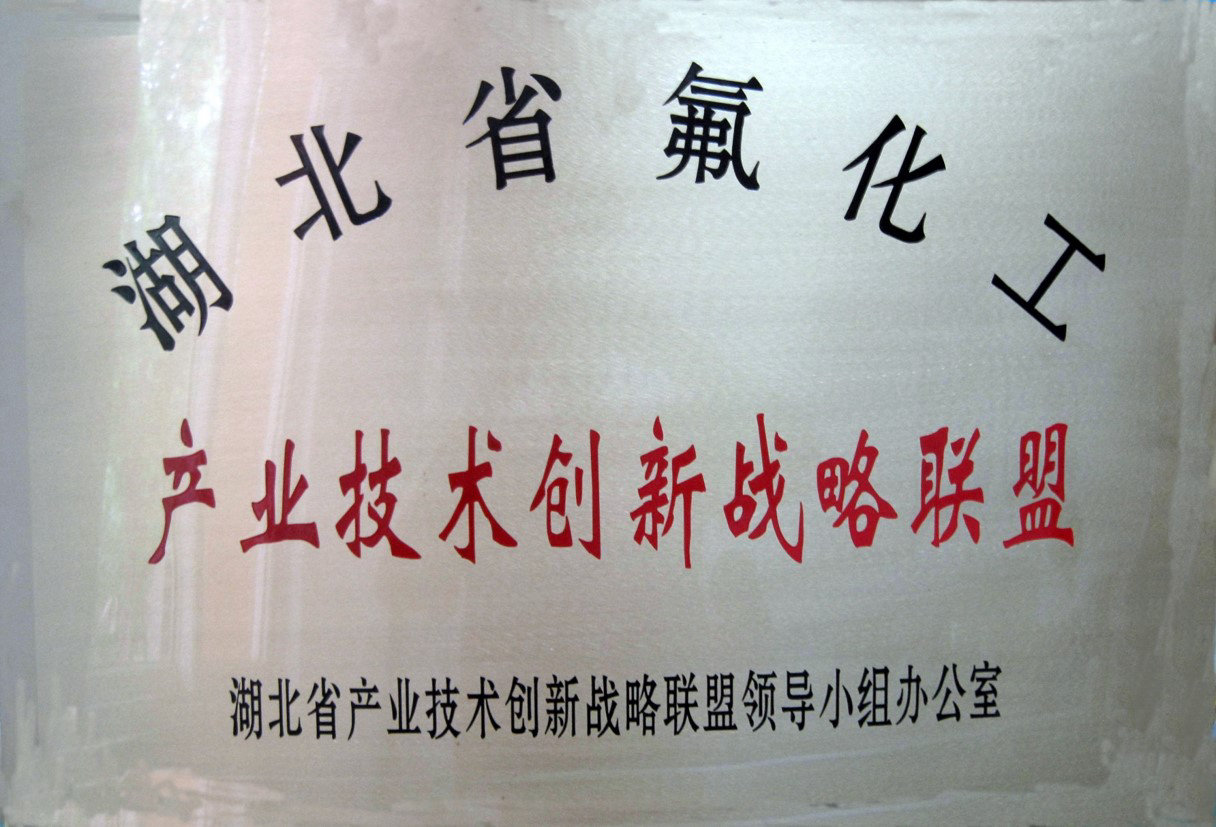 湖北省氟化工
产业技术创新战略联盟
湖北省产业技术创新战略联盟领导小组办公室